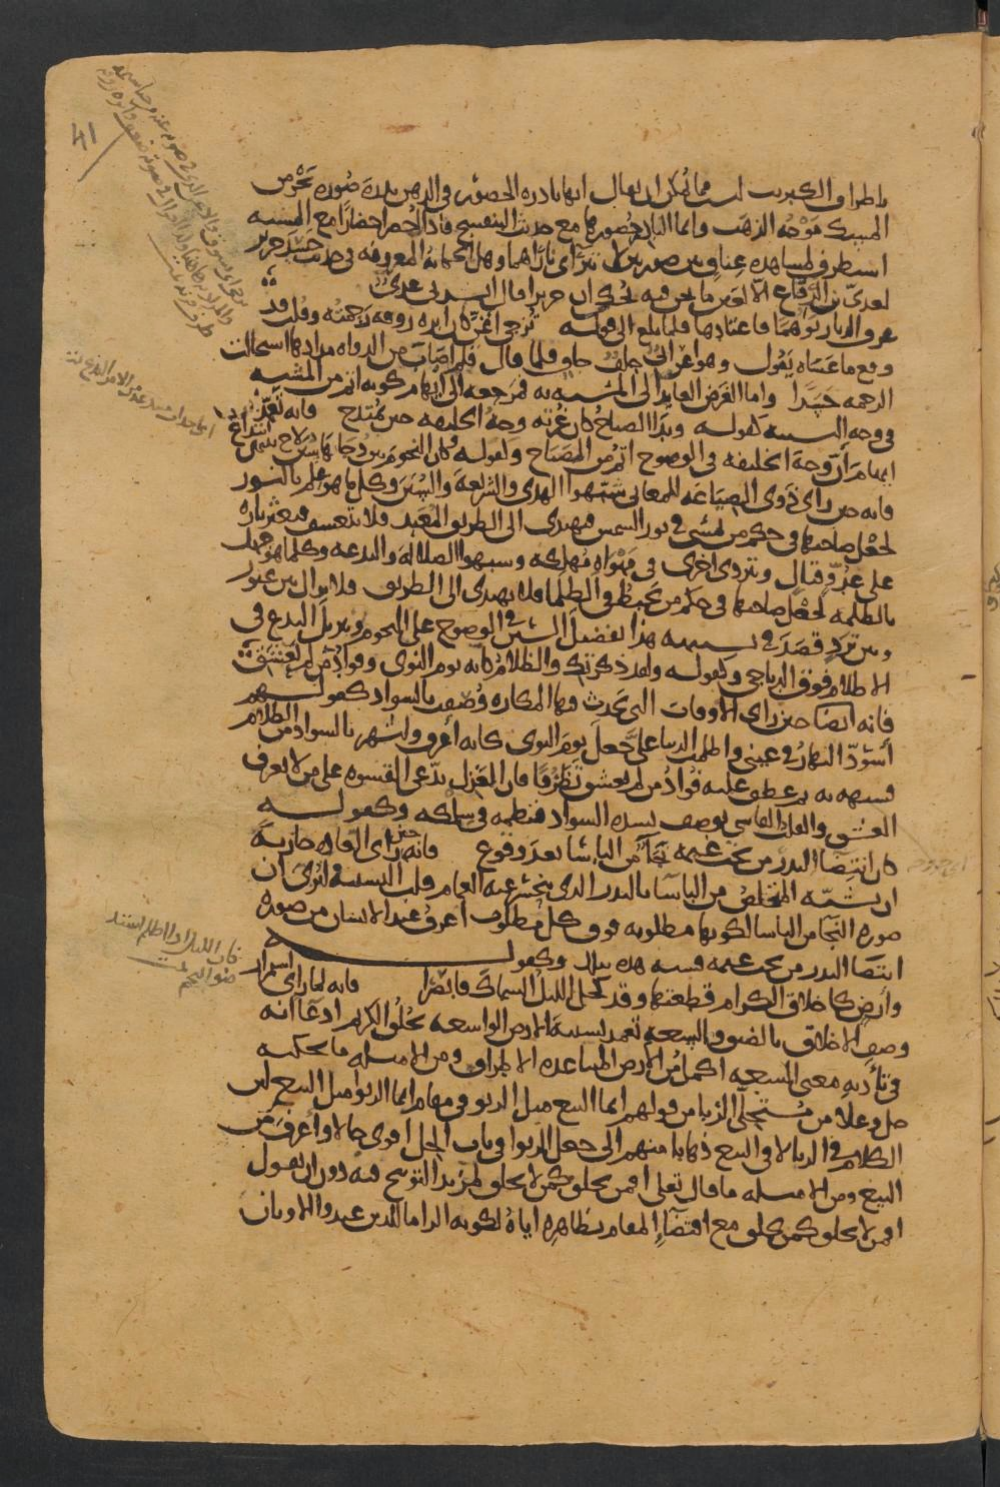 باطراف الكبريت ليست مما يمكن ان يقال انها نادرة الحضور في الذهن ندرة صورة بحر من
المسك موجه الذهب وانما النادر حضورها مع حديث البنفسج فاذا احضر احضارا مع الشبه
استطرف لمشاهدة عناق بين صورتين لا تتراءى ناراهما وهل الحكاية المعروفة في حديث جرير
لعدي بن الرقاع الا لعين ما نحن فيه يحكى ان جريرا قال انشدني عدي
عرف الديار توهما فاعتادها فلما بلغ الى قوله تزجي اغن كان ابرة روقه رحمته وقلت قد
وقع ما عساه يقول وهو اعرابي جلف جاف فلما قال قلم اصاب من الدواة مدادها استحالت
الرحمة حسدا واما الغرض العايد الى المشبه به فمرجعه الى ايهام كونه اتم من المشبه
في وجه التشبيه كقوله وبدا الصباح كان غرته وجه الخليفة حين يمتدح فانه تعمد
ايهام ان وجه الخليفة في الوضوح اتم من الصباح وكقوله وكان النجوم بين دجاها سنن لاح بينهن ابتداع
فانه حين راى ذوي الصياغة للمعاني شبهوا الهدى والشريعة والسنن وكل ما هو علم بالنور
لجعل صاحبها في حكم من يمشي في نور الشمس فيهتدي الى الطريق المعبد فلا يتعسف فيعثر تارة
على عدو قتال ويتردى اخرى في مهواة مهلكة وشبهوا الضلالة والبدعة وكلما هو جهل
بالظلمة لجعل صاحبها في حكم من يخبط في الظلماء فلا يهتدي الى الطريق فلا يزال بين عثور
وبين ترد قصد في تشبيهه هذا تفضيل السنن في الوضوح على النجوم وتنزيل البدع في
الاظلام فوق الدياجي وكقوله ولقد ذكرتك والظلام كانه يوم النوى وفؤاد من لم يعشق
فانه ايضا حين راى الاوقات التي تحدث فيها المكاره وصفت بالسواد كقولهم
اسود النهار في عيني واظلمت الدنيا علي جعل يوم النوى كانه اعرف واشهر بالسواد من الظلام
فشبهه به ثم عطف عليه فؤاد من لم يعشق تظرفا فان الغزل يدعي القسوة على من لا يعرف
العشق والقلب القاسي يوصف بشدة السواد فنظمه في سلكه وكقوله
كان انتضاء البدر من تحت غيمه نجاء من الباساء بعد وقوع فانه حين راى العادة جارية
ان يشبه المتخلص من الباساء بالبدر الذي ينحسر عنه الغمام قلب التشبيه ليرى ان
صورة النجاء من الباساء لكونها مطلوبة فوق كل مطلوب اعرف عند الانسان من صورة
انتضاء البدر من تحت غيمه فشبه هذه بتلك وكقوله
وارض كاخلاق الكرام قطعتها وقد كحل الليل السماك فابصرا فانه لما راى استمرار
وصف الاخلاق بالضيق وبالسعة تعمد تشبيه الارض الواسعة بخلق الكريم ادعاء انه
في تادية معنى السعة اكمل من الارض المتباعدة الاطراف ومن الامثلة ما يحكيه
جل وعلا من مستحلي الربا من قولهم انما البيع مثل الربو في مقام انما الربوا مثل البيع لان
الكلام في الربا لا في البيع ذهابا منهم الى جعل الربوا في باب الحل اقوى حالا واعرف من
البيع ومن الامثلة ما قال تعالى افمن يخلق كمن لا يخلق لمزيد التوبيخ فيه دون ان يقول
افمن لا يخلق كمن يخلق مع اقتضاء المقام بظاهره اياه لكونه الزاما للذين عبدوا الاوثان
41
كان الليل اذا اظلم يستند
ضو النجم